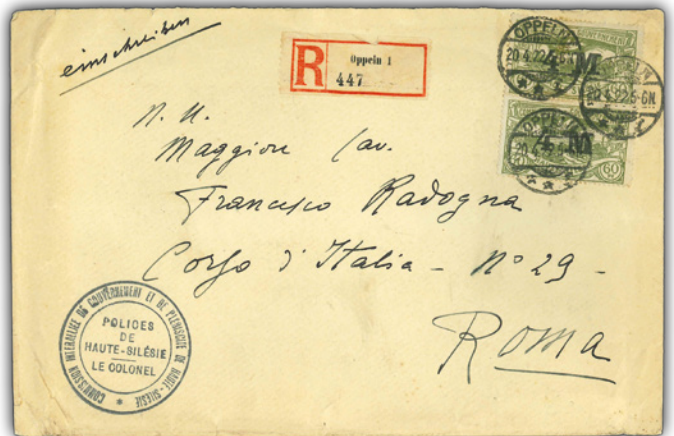 einschreiben
R
Oppeln 1
447
OPPELN
20.4.22.5-6N.
4 M
OPPELN
20.4.22.5-6N.
OPPELN
20.4.22
4 M
60
N. U.
Maggiore Cav.
Francesco Radogna
Corso d'Italia - N° 29 -
Roma
COMMISSION INTERALLIÉE DE GOUVERNEMENT ET DE PLÉBISCITE DE HAUTE-SILÉSIE
POLICES
DE
HAUTE-SILÉSIE
LE COLONEL